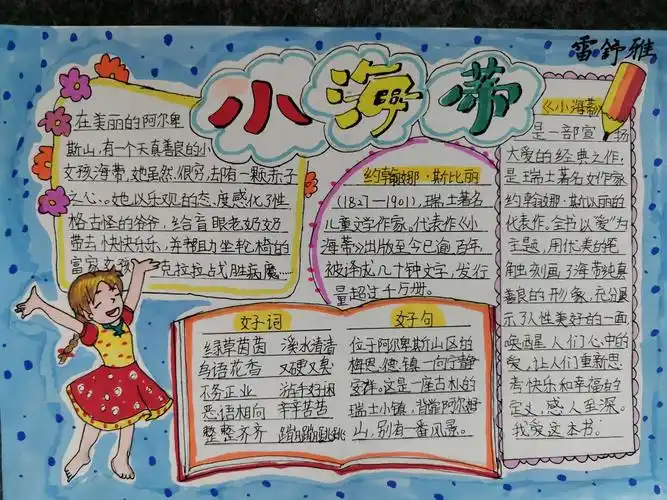 雷舒雅
小海蒂
在美丽的阿尔卑
斯山,有一个天真善良的小
女孩海蒂,她虽然很穷,却有一颗赤子
之心。她以乐观的态度感化了性
格古怪的爷爷,给盲眼老奶奶
带去快快乐乐,并帮助坐轮椅的
富家女孩克拉拉战胜病魔……
约翰娜·斯比丽
(1827-1901),瑞士著名
儿童文学作家。代表作《小
海蒂》出版至今已逾百年
被译成几十种文字,发行
量超过千万册。
《小海蒂》
是一部宣扬
大爱的经典之作,
是瑞士著名女作家
约翰娜·斯以丽的
代表作。全书以“爱”为
主题,用优美的笔
触刻画了海蒂纯真
善良的形象,充分展
示了人性美好的一面
唤醒人们心中的
爱,让人们重新思
考快乐和幸福的
定义,感人至深。
我爱这本书。
好词
绿草茵茵 溪水清清
鸟语花香 又硬又
不务正业 游手好闲
恶语相向 辛辛苦苦
整整齐齐 蹦蹦跳跳
好句
位于阿尔卑斯山区的
梅恩
。这是一座古朴的
瑞士小镇,背靠阿尔卑
山,别有一番风景。